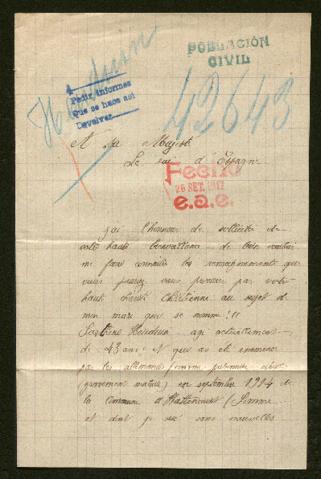 POBLACIÓN
CIVIL
Pedir informes
que se hace así
Devolver
42643
A Sa Majesté
Le roi d'Espagne
Fecho
26 SET. 1917
e.a.e.
j'ai l'honneur de solliciter de
votre haute bienveillance de bien vouloir
me faire connaître les renseignements que
vous pourrez vous procurer par votre
haute charité chrétienne au sujet de
mon mari qui se nomme
agé actuellement
de 43 ans et qui a été emmener
par les allemands comme prisonnier
en septembre 1914 de
la commune d'Hattencourt (Somme
et dont je suis sans nouvelles